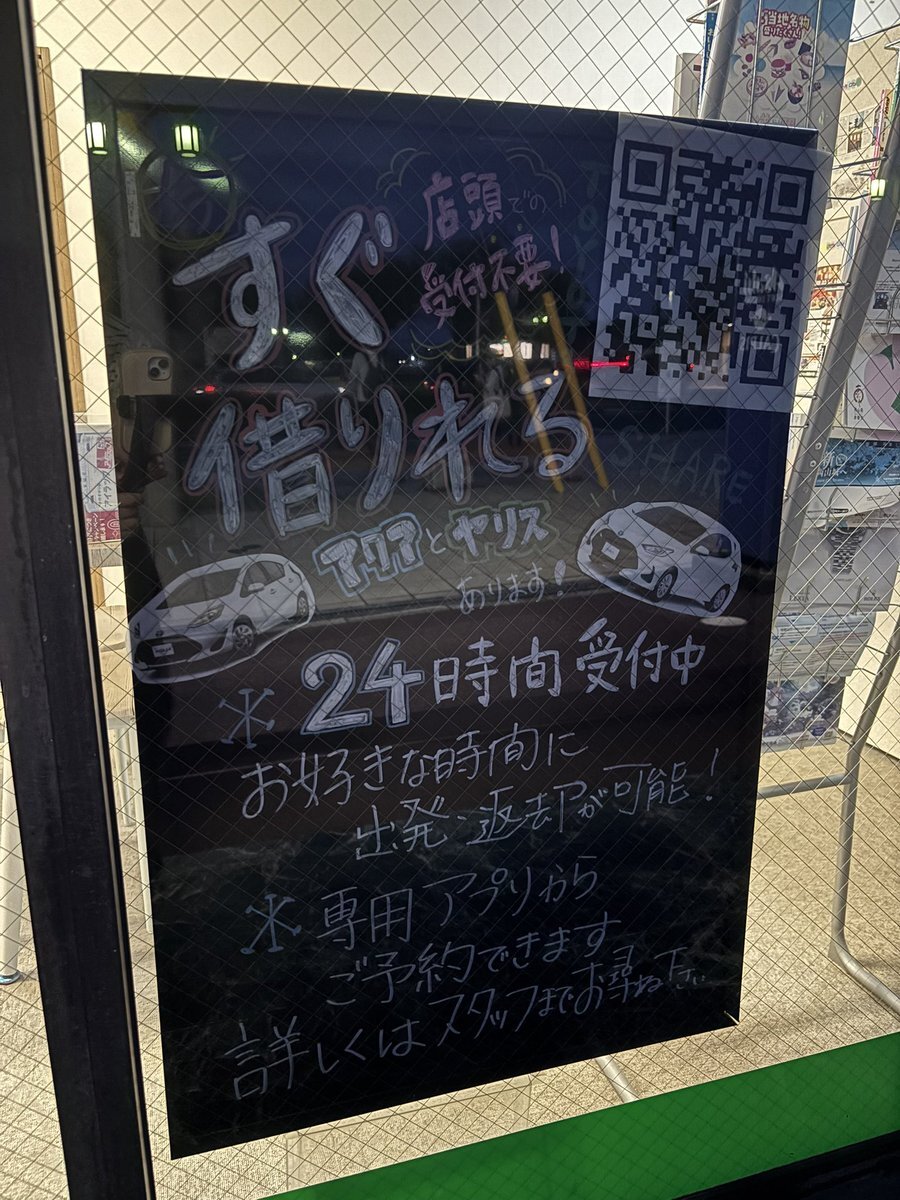 店頭での
受付不要!
すぐ
借りれる
TOYOTA
SHARE
アクアとヤリス
あります!
※24時間受付中
お好きな時間に
出発・返却が可能!
※専用アプリから
ご予約できます
詳しくはスタッフまでお尋ね下さい
ご当地名物